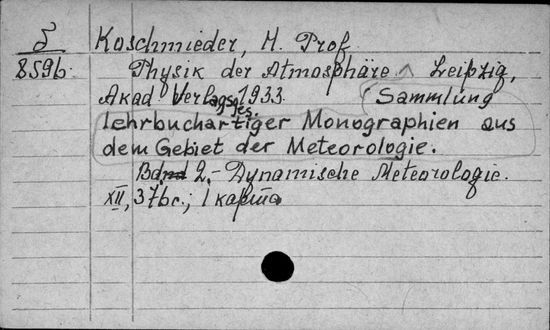 Б Koschmieder, H. Prof
8596. Physik der Atmosphäre ^ Leipzig,
Akad Verlagsges. 1933. (Sammlung
lehrbuchartiger Monographien aus
dem Gebiet der Meteorologie.
Band 2.- Dynamische Meteorologie.
XII, 376 с.; 1 карта